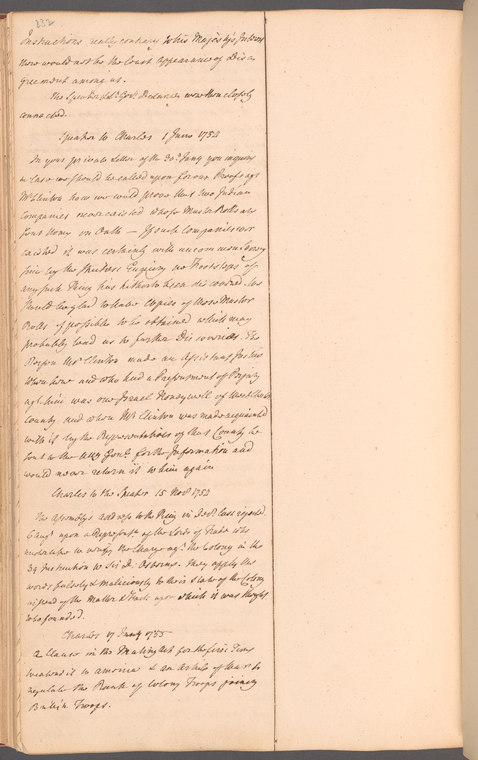 232
Instructions really contrary to his Majestys Interest
there would not be the least appearance of Disa
greement among us.
The Speaker & Govr Delancey were then closely
connected.
Speaker to Charles 1 June 1753
In your private Letter of the 30. Jany you inquire
in Case we should be called upon for our Proofs agt
Mr Clinton how we could prove that two Indian
Companies never existed whose Muster Rolls are
sent home on Oath — If such Companies ever
existed it was certainly with uncommon Secrecy
since by the strictest Enquiry no Footsteps of
any such thing has hitherto been discovered. We
should be glad to have Copies of those Muster
Rolls if possible to be obtained which may
probably lead us to further Discoveries. The
Person Mr Clinton made an Assistant Justice
when here and who had a Presentment of Perjury
agt him was one Israel Honeywell of West Chester
County and when Mr Clinton was made acquainted
with it by the Representatives of that County he
sent to the Govt for the Information and
would never return it to him again
Charles to the Speaker 15 Novr 1753
The Assembly's address to the King in Decr last rejected
upon a Represent. of the Lords of Trade who
undertake to justify the Charge agt the Colony in the
39 Instruction to Sir D. Osborne. They apply the
words falsely & maliciously to their State of the Colony
instead of the Matter & Facts upon which it was thought
to be founded.
Charles 17 Jany 1755
A Clause in the Mutiny Act for the first Time
extends it to America & an Article of War to
regulate the Rank of Colony Troops joining
British Troops.